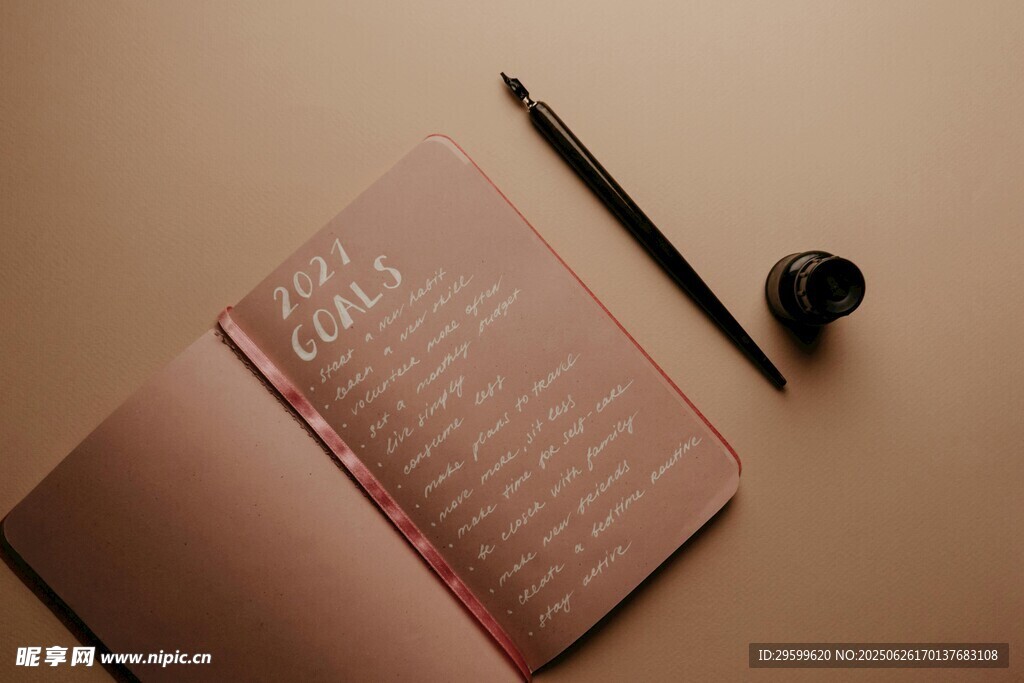 2021
GOALS
• start a new habit
• learn a new skill
• volunteer more often
• set a monthly budget
• live simply
• consume less
• make plans to travel
• move more, sit less
• make time for self-care
• be closer with family
• make new friends
• create a bedtime routine
• stay active
昵享网 www.nipic.cn
ID:29599620 NO:20250626170137683108